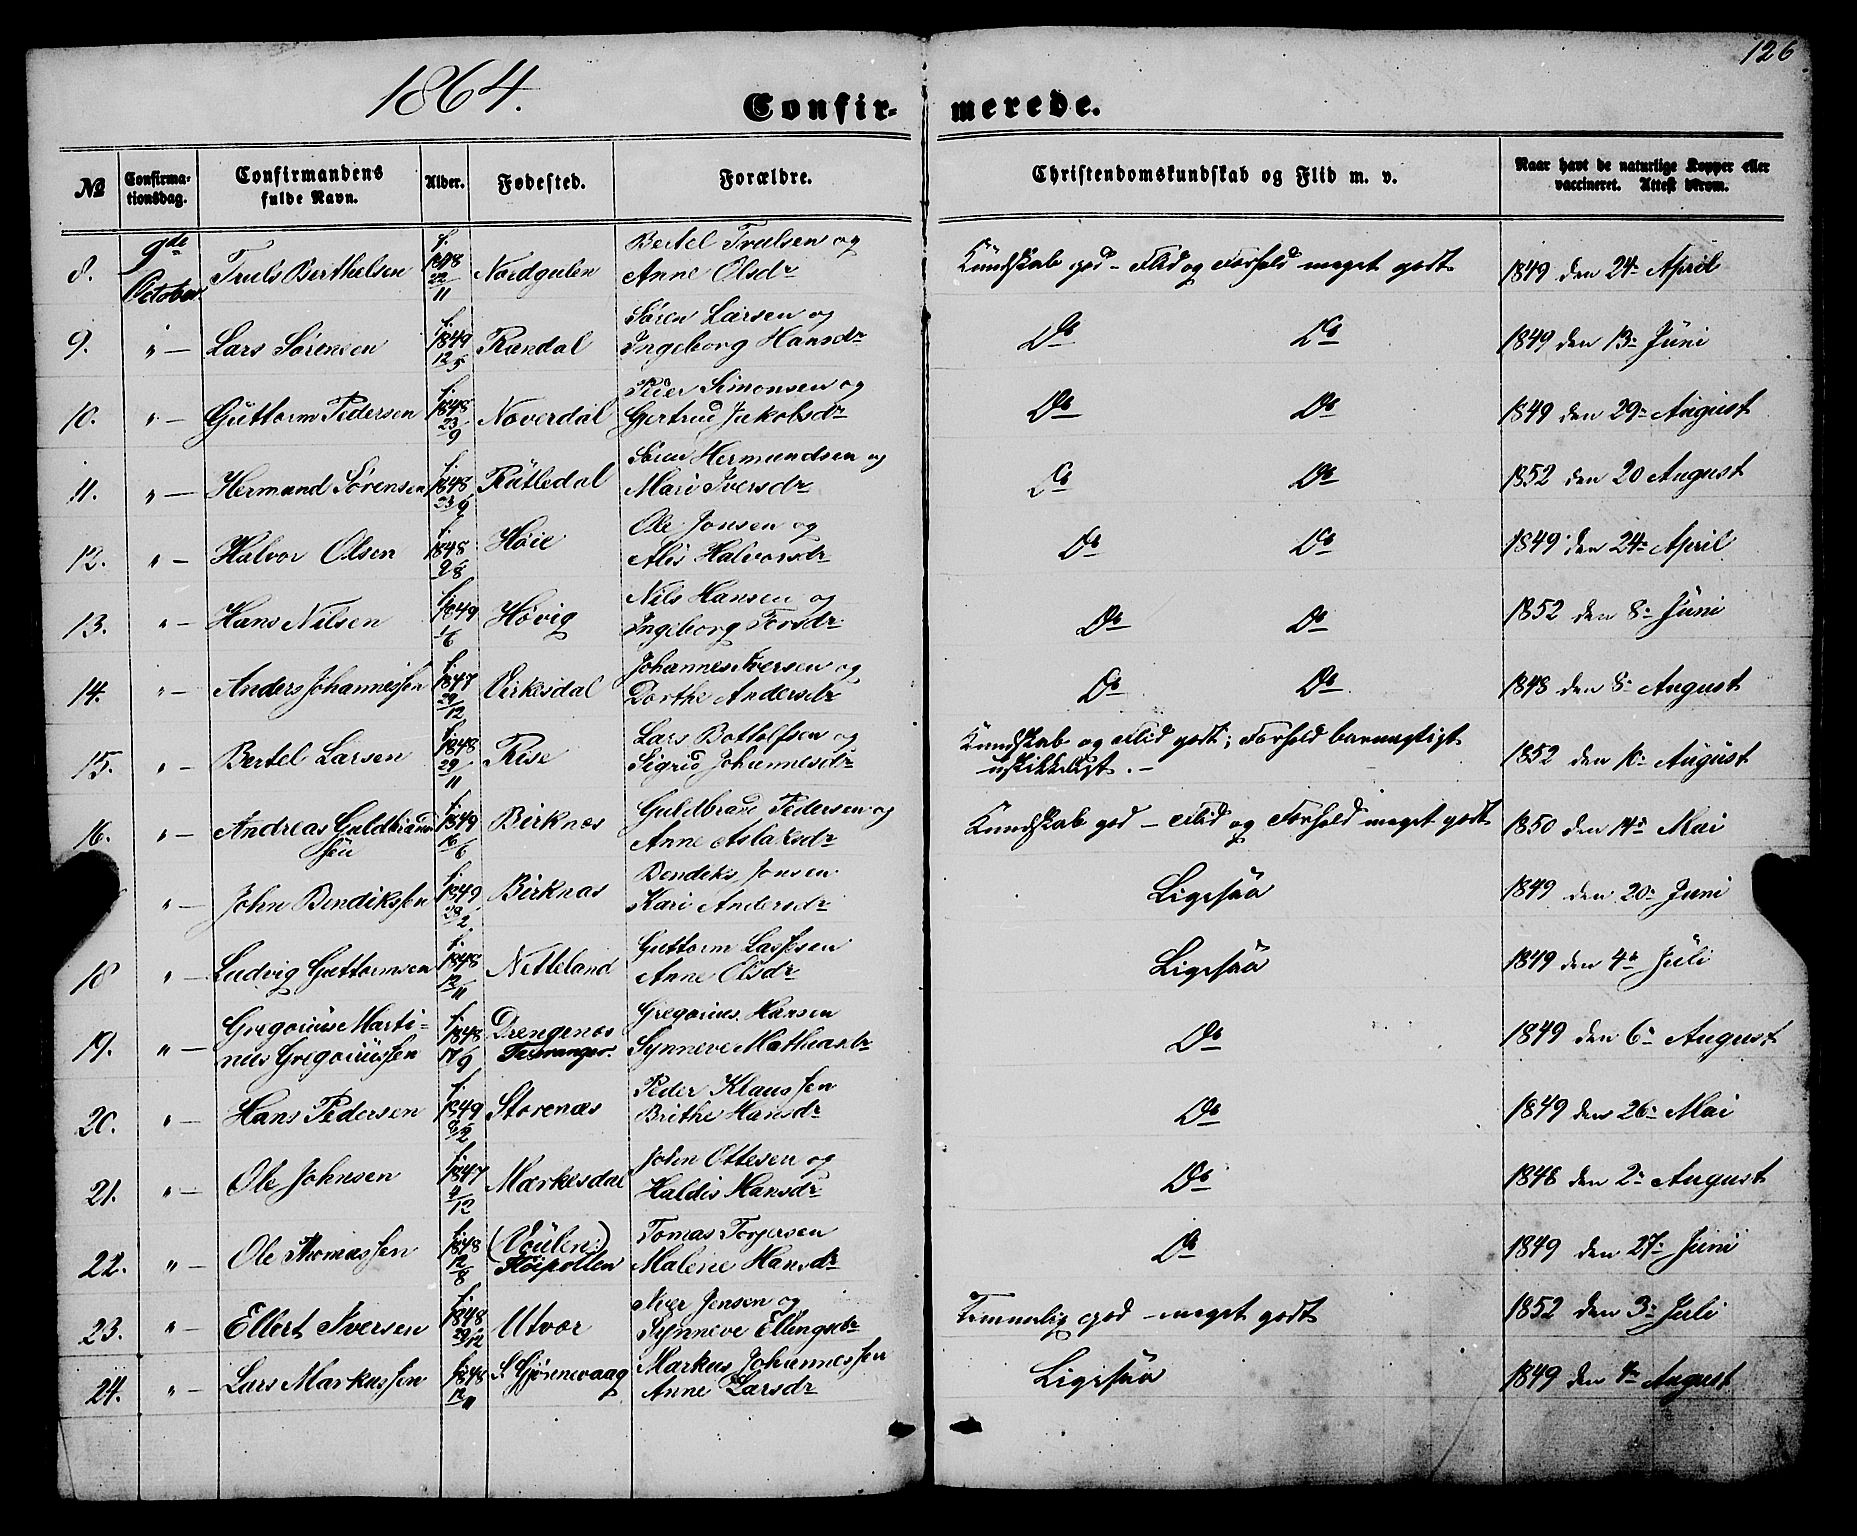 126
1864.
Confir- merede.
№ Confirma-tionsdag. Confirmandens fulde Navn. Alder. Fødested. Forældre. Christendomskundskab og Flid m. v. Naar havt de naturlige Kopper eller vaccineret. Attest derom.
8. 9de October Truls Berthelsen f. 1848 22/11 Nordgulen Bertel Trulsen og Anne Olsdr Kundskab god – Flid og Forhold meget godt 1849 den 24de April
9. " — Lars Sørensen f. 1849 12/5 Rændal Søren Larsen og Ingeborg Hansdr Do Do 1849 den 13de Juni
10. " — Guttorm Pedersen f. 1848 23/9 Noverdal Peder Simonsen og Gjertrud Jakobsdr Do Do 1849 den 29de August
11. " — Hermund Sørensen f. 1848 Rutledal Søren Hermundsen og Mari Iversdr Do Do 1852 den 20 August
12. " — Halvor Olsen f. 1848 Høie Ole Jonsen og Alis Halvorsdr Do Do 1849 den 24de April
13. " — Hans Nilsen f. 1849 1/6 Høvig Nils Hansen og Ingeborg Torsdr Do Do 1852 den 8de Juni
14. " — Anders Johannessen f. 1847 29/12 Virkesdal Johannes Iversen og Dorthe Andersdr Do Do 1848 den 8de August
15. " — Bertel Larsen f. 1848 29/11 Rise Lars Bottolfsen og Sigrid Johannesdr Kundskab og Flid godt; Forhold barnagtigt uskikkeligt. – 1852 den 10de August
16. " — Andreas Guldbrandsen f. 1849 16/6 Birknæs Guldbrand Pedersen og Anne Aslaksdr Kundskab god – Flid og Forhold meget godt 1850 den 14de Mai
" — John Bendikssen f. 1849 28/2 Birknæs Bendiks Jonsen Kari Andersdr Ligesaa 1849 den 20de Juni
18 " — Ludvig Guttormsen f. 1848 12/11 Nitteland Guttorm Lassesen Anne Olsdr Ligesaa 1849 den 4de Juli
19. " — Gregorius Marti-nus Gregoriussen f. 1848 17/9 Drengenæs Gregorius Hansen Synneve Mathiasdr Do 1849 den 6de August
20. " — Hans Pedersen f. 1849 Storenæs Peder Klaussen Brithe Hansdr Do 1849 den 26de Mai
21. " — Ole Johnsen f. 1847 Mærkesdal John Ottesen og Haldis Hansdr Do 1848 den 2de August
22. " — Ole Thomassen f. 1848 12/8 Tomas Torjersen Malene Hansdr Do 1849 den 27de Juni
23. " — Ellert Iversen f. 1848 29/12 Utvær Iver Jensen og Synneve Ellingsdr Temmelig god – meget godt 1852 den 3de Juli
24. " — Lars Markussen f. 1848 12/11 S. Gjønnevaag Markus Johannessen Anne Larsdr Ligesaa 1849 den August